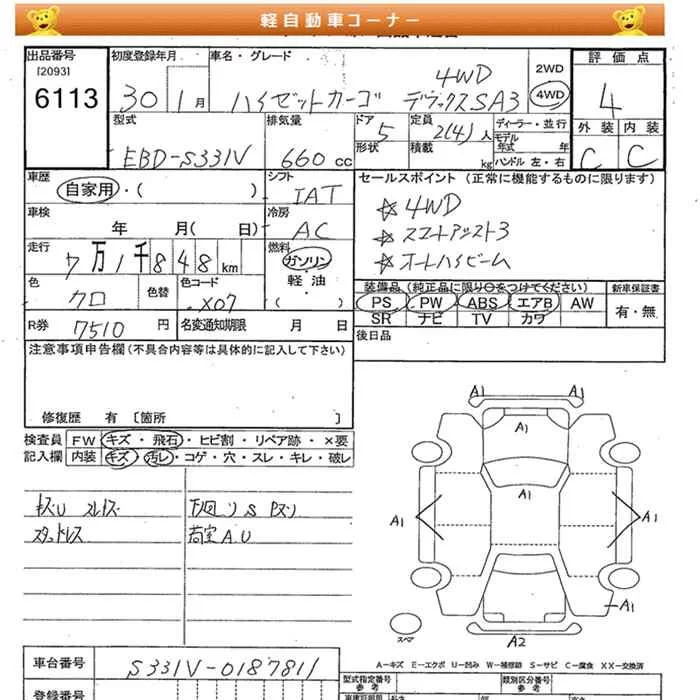 軽自動車コーナー
出品番号 初度登録年月 車名・グレード 2WD 評価点
[2093] 4WD
6113 30 1月 ハイゼットカーゴ デラックスSA3 4WD 4
型式 排気量 ドア 定員 ディーラー・並行 外装 内装
5 2(4)人 モデル年式 年
EBD-S331V 660cc 形状 積載 kg ハンドル 左・右 C C
車歴 シフト セールスポイント (正常に機能するものに限ります)
自家用・( ) IAT ☆ 4WD
車検 冷房
年 月( 日) AC ☆ スマートアシスト3
走行 燃料
7万1千848km ガソリン ☆ オートハイビーム
軽油
色 色替 色コード ( ) 装備品 (純正品に限り○をつけてください) 新車保証書
クロ X07 PS PW ABS エアB AW 有・無
SR ナビ TV カワ
R券 7510円 名変通知期限 月 日 後日品
注意事項申告欄(不具合内容等は具体的に記入して下さい)
修復歴 有 [箇所 ]
検査員 FW キズ・飛石・ヒビ割・リペア跡・×要
記入欄 内装 キズ・汚レ・コゲ・穴・スレ・キレ・破レ
スタッドレス 荷室A.U
A1 A1
A1
A1
A1 A1
A1
スペア A2
A-キズ E-エクボ U-凹み W-補修跡 S-サビ C-腐食 XX-交換済
車台番号 S331V-0187811
型式指定番号 類別区分番号
参考 参考
登録番号 長さ 幅 高さ